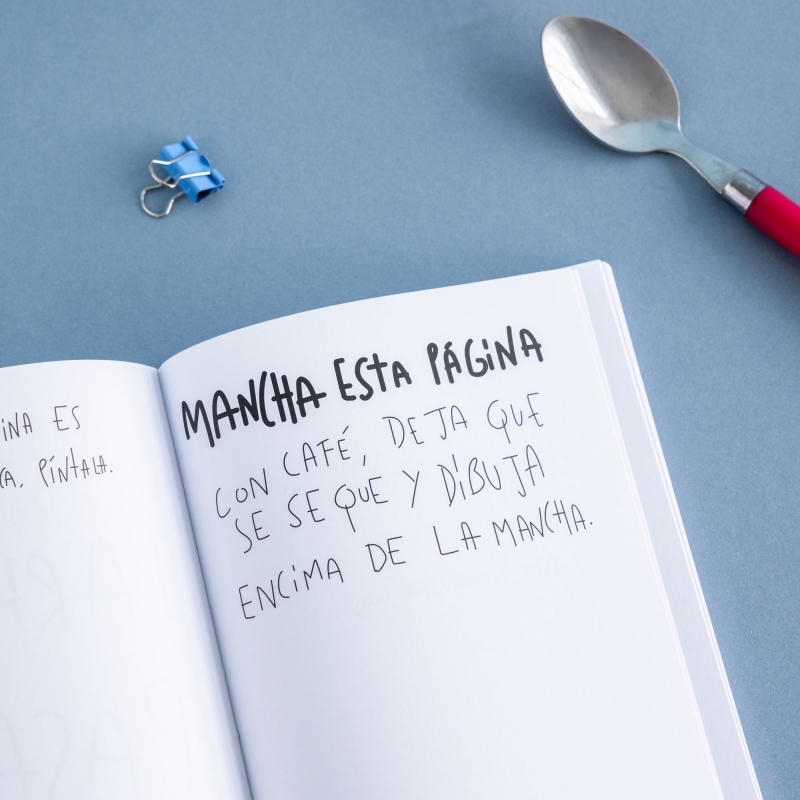 ES
PÍNTALA.
MANCHA ESTA PÁGINA
CON CAFÉ, DEJA QUE
SE SEQUE Y DIBUJA
ENCIMA DE LA MANCHA.